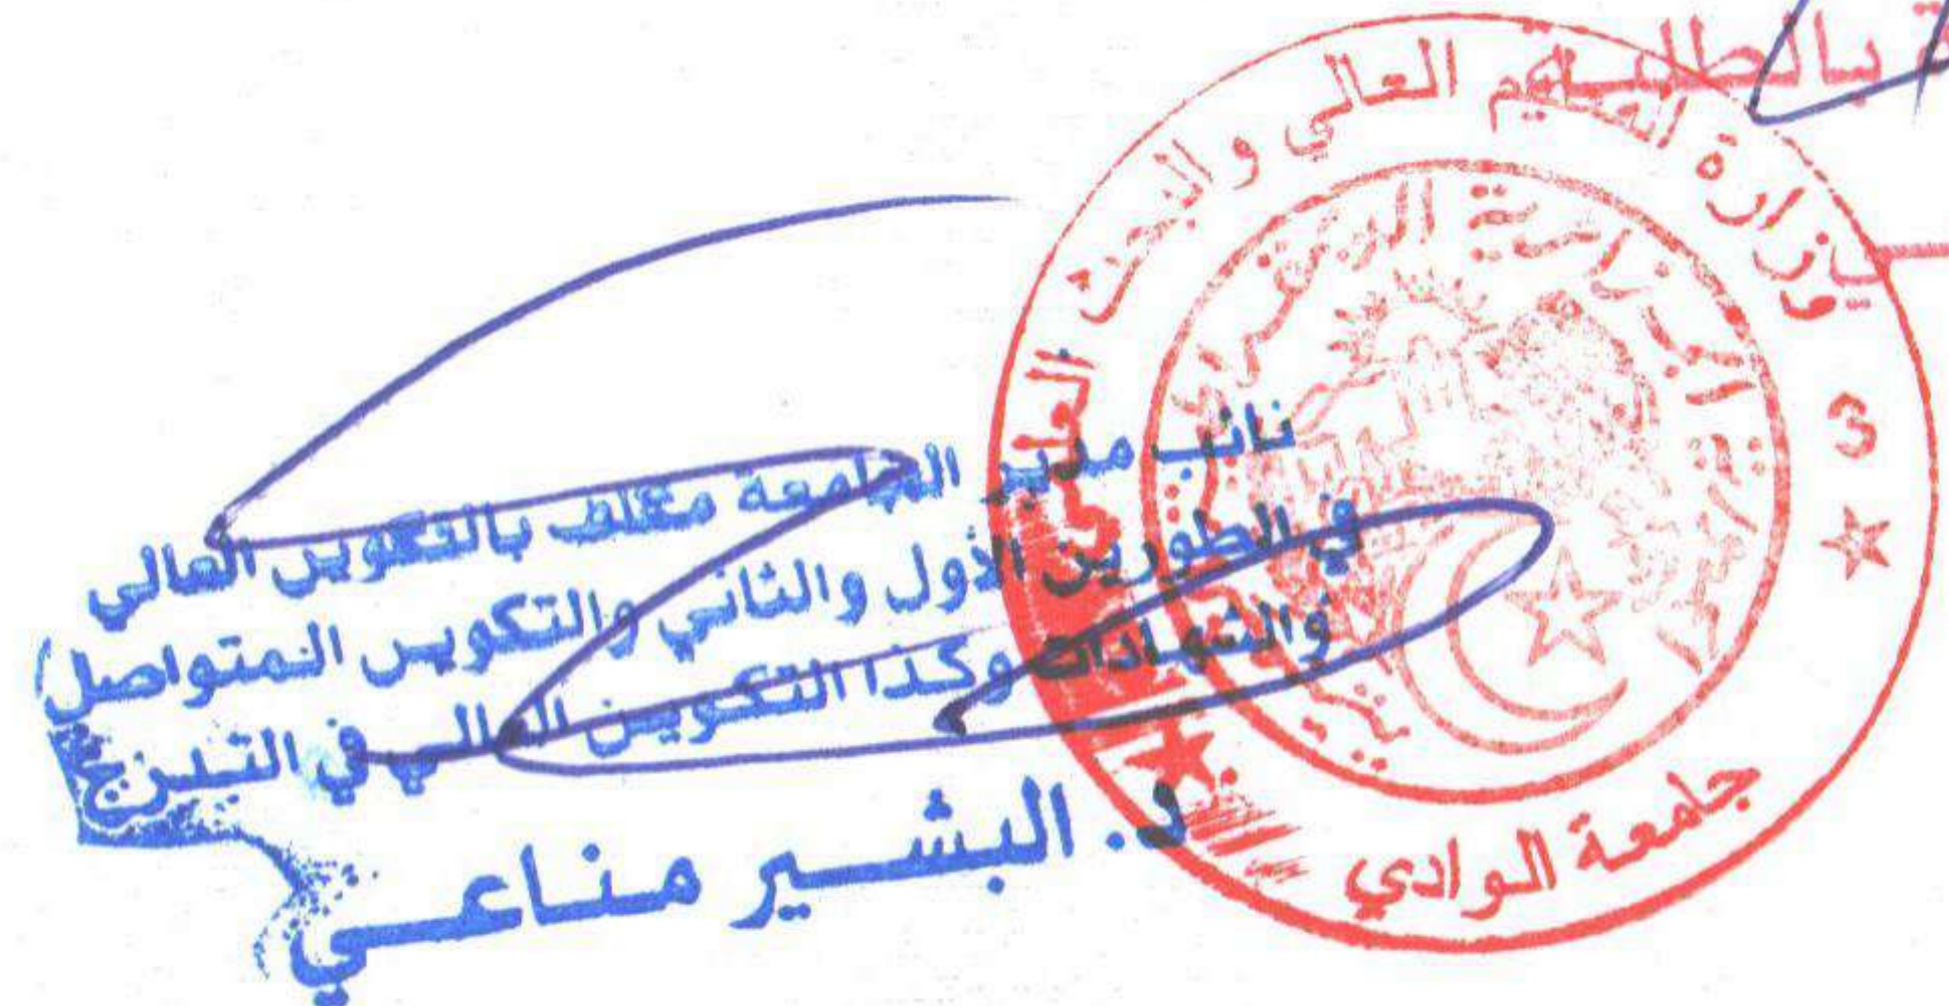 بالطلبة
وزارة التعليم العالي والبحث العلمي
الجزائرية الديمقراطية
3
جامعة الوادي
نائب مدير الجامعة مكلف بالتكوين العالي
في الطورين الأول والثاني والتكوين المتواصل
والشهادات وكذا التكوين العالي في التدرج
د. البشير مناعي